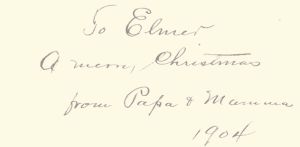 To Elmer
A merry Christmas
from Papa & Mamma
1904